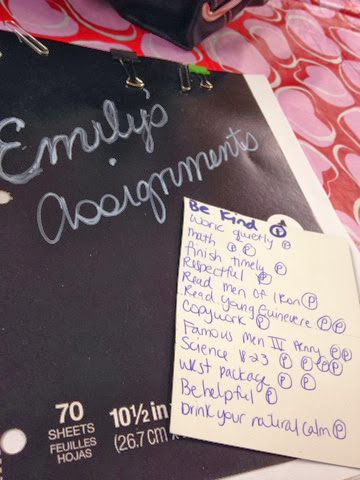 Emily's
Assignments
Be Kind Ⓟ
Work quietly Ⓟ
math Ⓟ Ⓟ
finish timely Ⓟ
Respectful Ⓟ
Read men of Iron Ⓟ
Read young Guinevere Ⓟ Ⓟ
Copywork Ⓟ
Famous Men III Henry Ⓟ Ⓟ
Science 1 2 3 Ⓟ Ⓟ Ⓟ Ⓟ
West package Ⓟ Ⓟ
Be helpful Ⓟ
Drink your natural calm Ⓟ
70
SHEETS
FEUILLES
HOJAS
10½ in
(26.7 cm